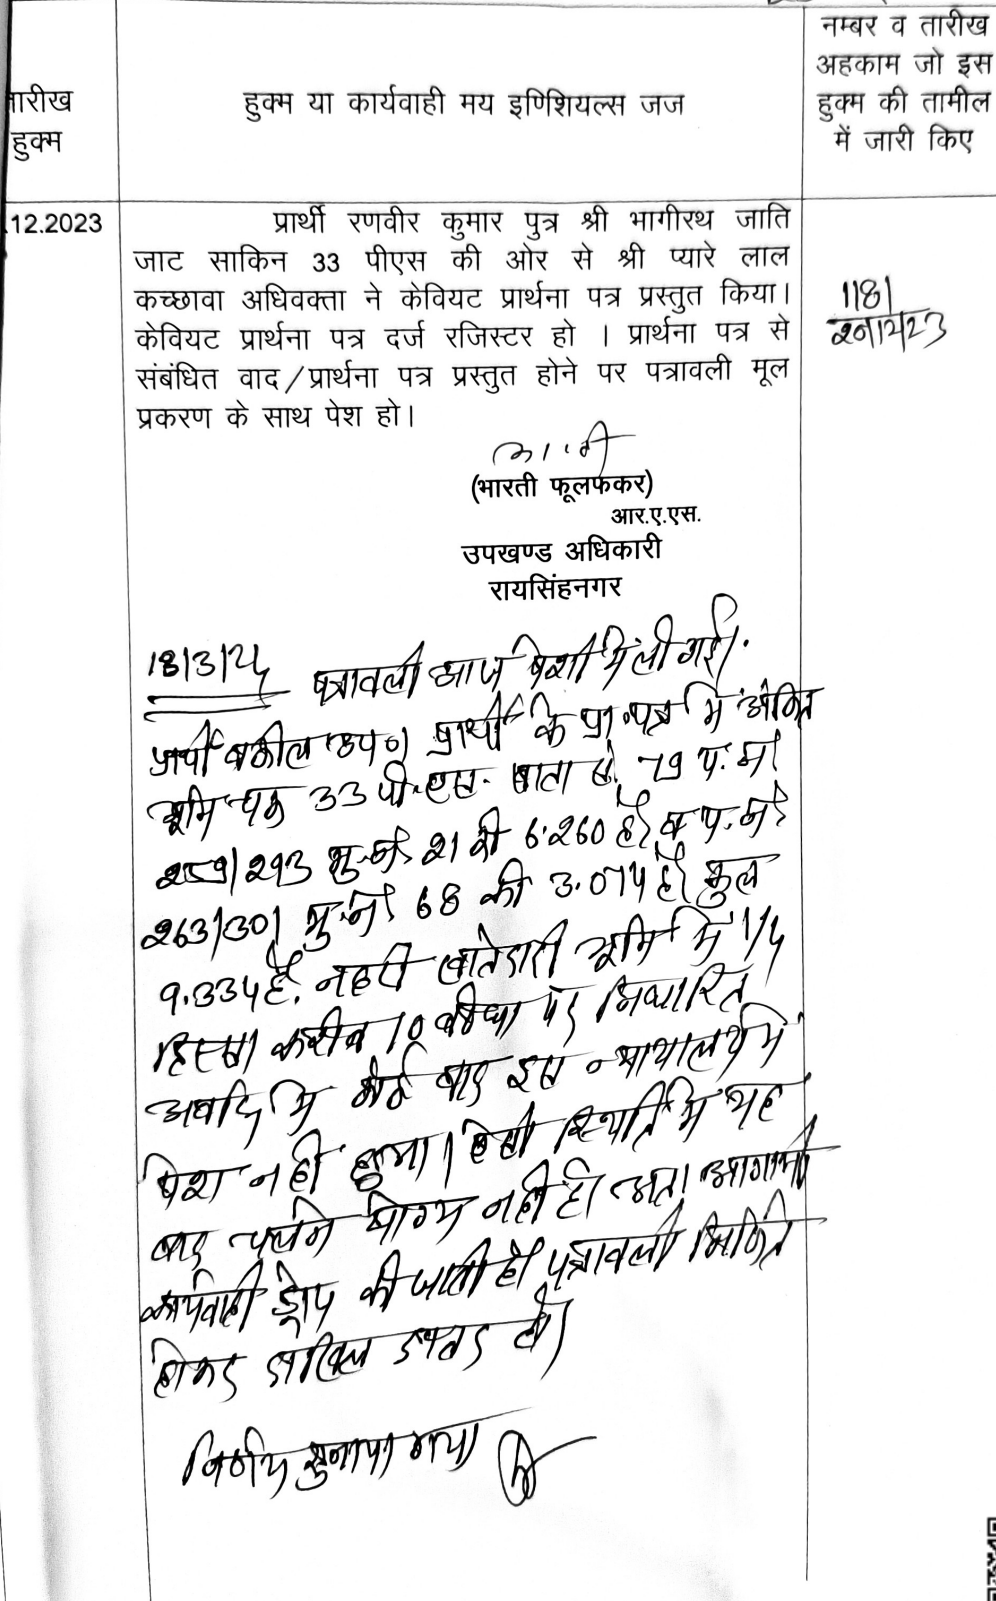 तारीख
हुक्म
हुक्म या कार्यवाही मय इणिशियल्स जज
नम्बर व तारीख
अहकाम जो इस
हुक्म की तामील
में जारी किए
.12.2023
प्रार्थी रणवीर कुमार पुत्र श्री भागीरथ जाति
जाट साकिन 33 पीएस की ओर से श्री प्यारे लाल
कच्छावा अधिवक्ता ने केवियट प्रार्थना पत्र प्रस्तुत किया।
केवियट प्रार्थना पत्र दर्ज रजिस्टर हो । प्रार्थना पत्र से
संबंधित वाद/प्रार्थना पत्र प्रस्तुत होने पर पत्रावली मूल
प्रकरण के साथ पेश हो।
1181
20/12/23
(भारती फूलफकर)
आर.ए.एस.
उपखण्ड अधिकारी
रायसिंहनगर
18/3/24 पत्रावली आज पेशी में ली गई।
प्रार्थी वकील उप०। प्रार्थी के प्रा०पत्र में अंकित
भूमि चक 33 पी.एस. खाता सं. 79 प.नं.
259/293 मु.नं. 21 की 6.260 है. व प.नं.
263/301 मु.नं. 68 की 3.074 है. कुल
9.334 है. नहरी खातेदारी भूमि में 1/4
हिस्सा करीब 10 बीघा पर निर्धारित
अवधि में कोई वाद इस न्यायालय में
पेश नहीं हुआ। ऐसी स्थिति में यह
वाद चलने योग्य नहीं है। अतः आगामी
कार्यवाही ड्रोप की जाती है। पत्रावली निर्णित
होकर दाखिल दफ्तर हो।
निर्णय सुनाया गया